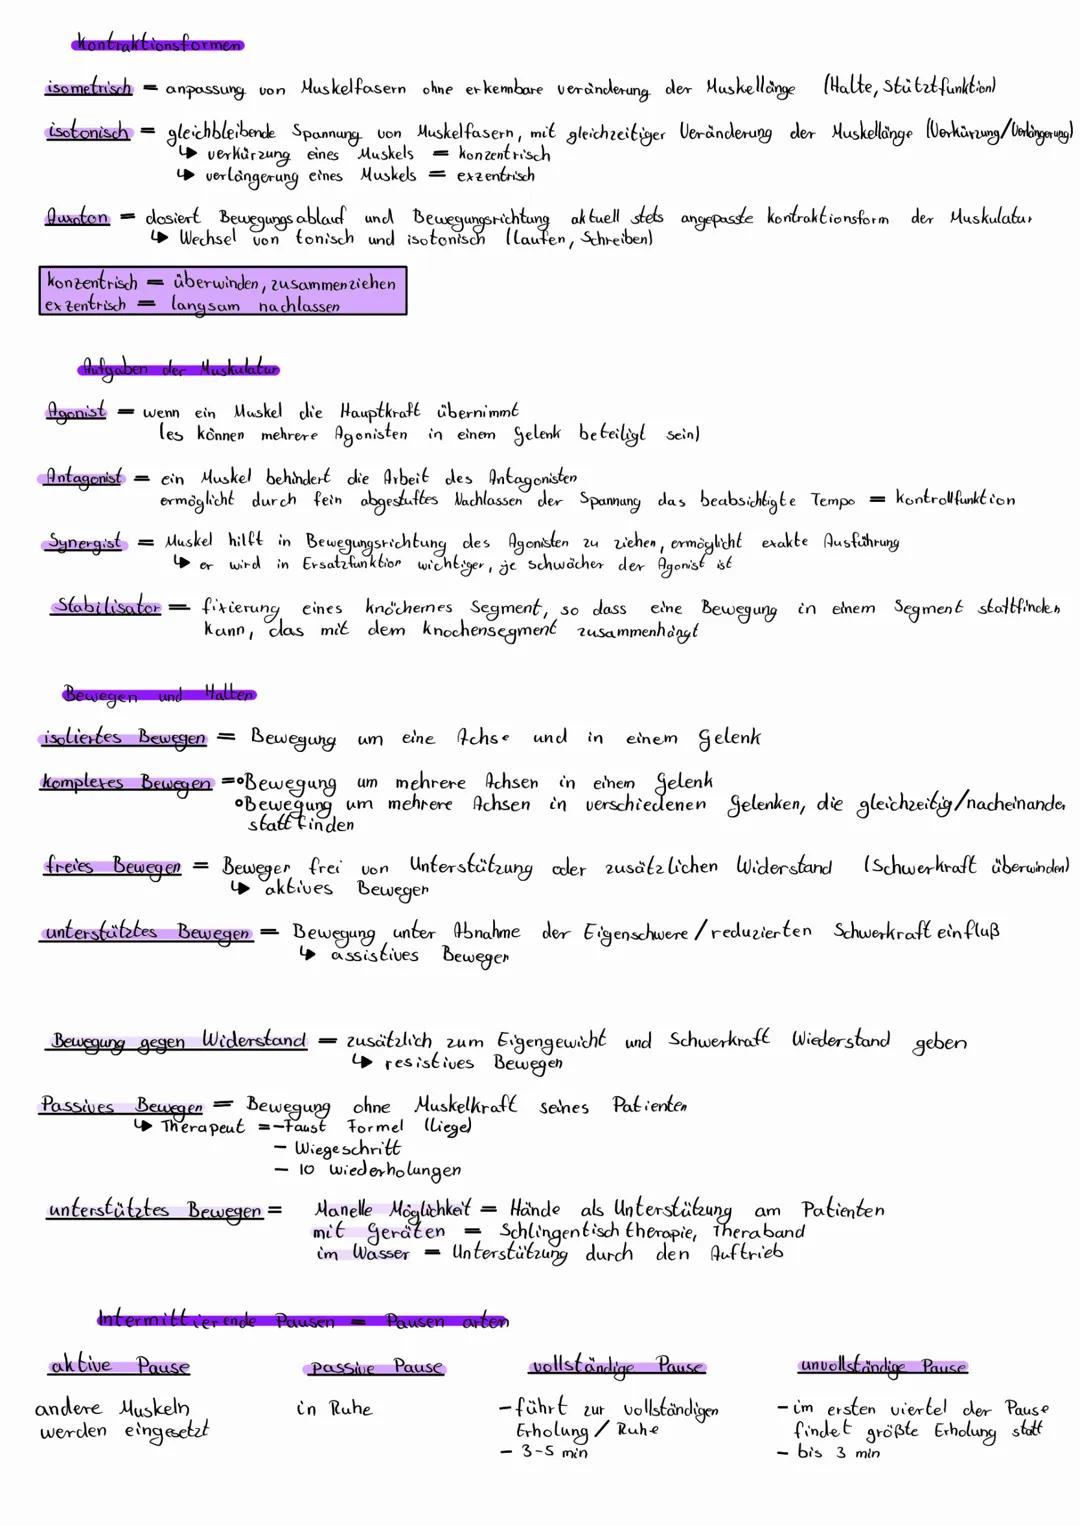 Kontraktionsformen
isometrisch = anpassung von Muskelfasern ohne erkennbare veränderung der Muskellänge (Halte, Stütztfunktion)
isotonisch = gleichbleibende Spannung von Muskelfasern, mit gleichzeitiger Veränderung der Muskellänge (Verkürzung/Verlängerung)
↳ verkürzung eines Muskels = konzentrisch
↳ verlängerung eines Muskels = exzentrisch
Auxoton = dosiert Bewegungsablauf und Bewegungsrichtung aktuell stets angepasste kontraktionsform der Muskulatur
↳ Wechsel von tonisch und isotonisch (laufen, Schreiben)
konzentrisch = überwinden, zusammenziehen
exzentrisch = langsam nachlassen
Aufgaben der Muskulatur
Agonist = wenn ein Muskel die Hauptkraft übernimmt
(es können mehrere Agonisten in einem Gelenk beteiligt sein)
Antagonist = ein Muskel behindert die Arbeit des Antagonisten
ermöglicht durch fein abgestuftes Nachlassen der Spannung das beabsichtigte Tempo = Kontrollfunktion
Synergist = Muskel hilft in Bewegungsrichtung des Agonisten zu ziehen, ermöglicht exakte Ausführung
↳ er wird in Ersatzfunktion wichtiger, je schwächer der Agonist ist
Stabilisator = fixierung eines knöchernes Segment, so dass eine Bewegung in einem Segment stattfinden
kann, das mit dem Knochensegment zusammenhängt
Bewegen und Halten
isoliertes Bewegen = Bewegung um eine Achse und in einem Gelenk
komplexes Bewegen = °Bewegung um mehrere Achsen in einem Gelenk
°Bewegung um mehrere Achsen in verschiedenen Gelenken, die gleichzeitig/nacheinander
stattfinden
freies Bewegen = Bewegen frei von Unterstützung oder zusätzlichen Widerstand (Schwerkraft überwinden)
↳ aktives Bewegen
unterstütztes Bewegen = Bewegung unter Abnahme der Eigenschwere/reduzierten Schwerkrafteinfluß
↳ assistives Bewegen
Bewegung gegen Widerstand = zusätzlich zum Eigengewicht und Schwerkraft Wiederstand geben
↳ resistives Bewegen
Passives Bewegen = Bewegung ohne Muskelkraft seines Patienten
↳ Therapeut = - Faust Formel (Liege)
- Wiegeschritt
- 10 Wiederholungen
unterstütztes Bewegen = Manelle Möglichkeit = Hände als Unterstützung am Patienten
mit Geräten = Schlingentischtherapie, Theraband
im Wasser = Unterstützung durch den Auftrieb
Intermittierende Pausen = Pausen arten
aktive Pause passive Pause vollständige Pause unvollständige Pause
andere Muskeln in Ruhe - führt zur vollständigen - im ersten viertel der Pause
werden eingesetzt Erholung / Ruhe findet größte Erholung statt
- 3-5 min - bis 3 min